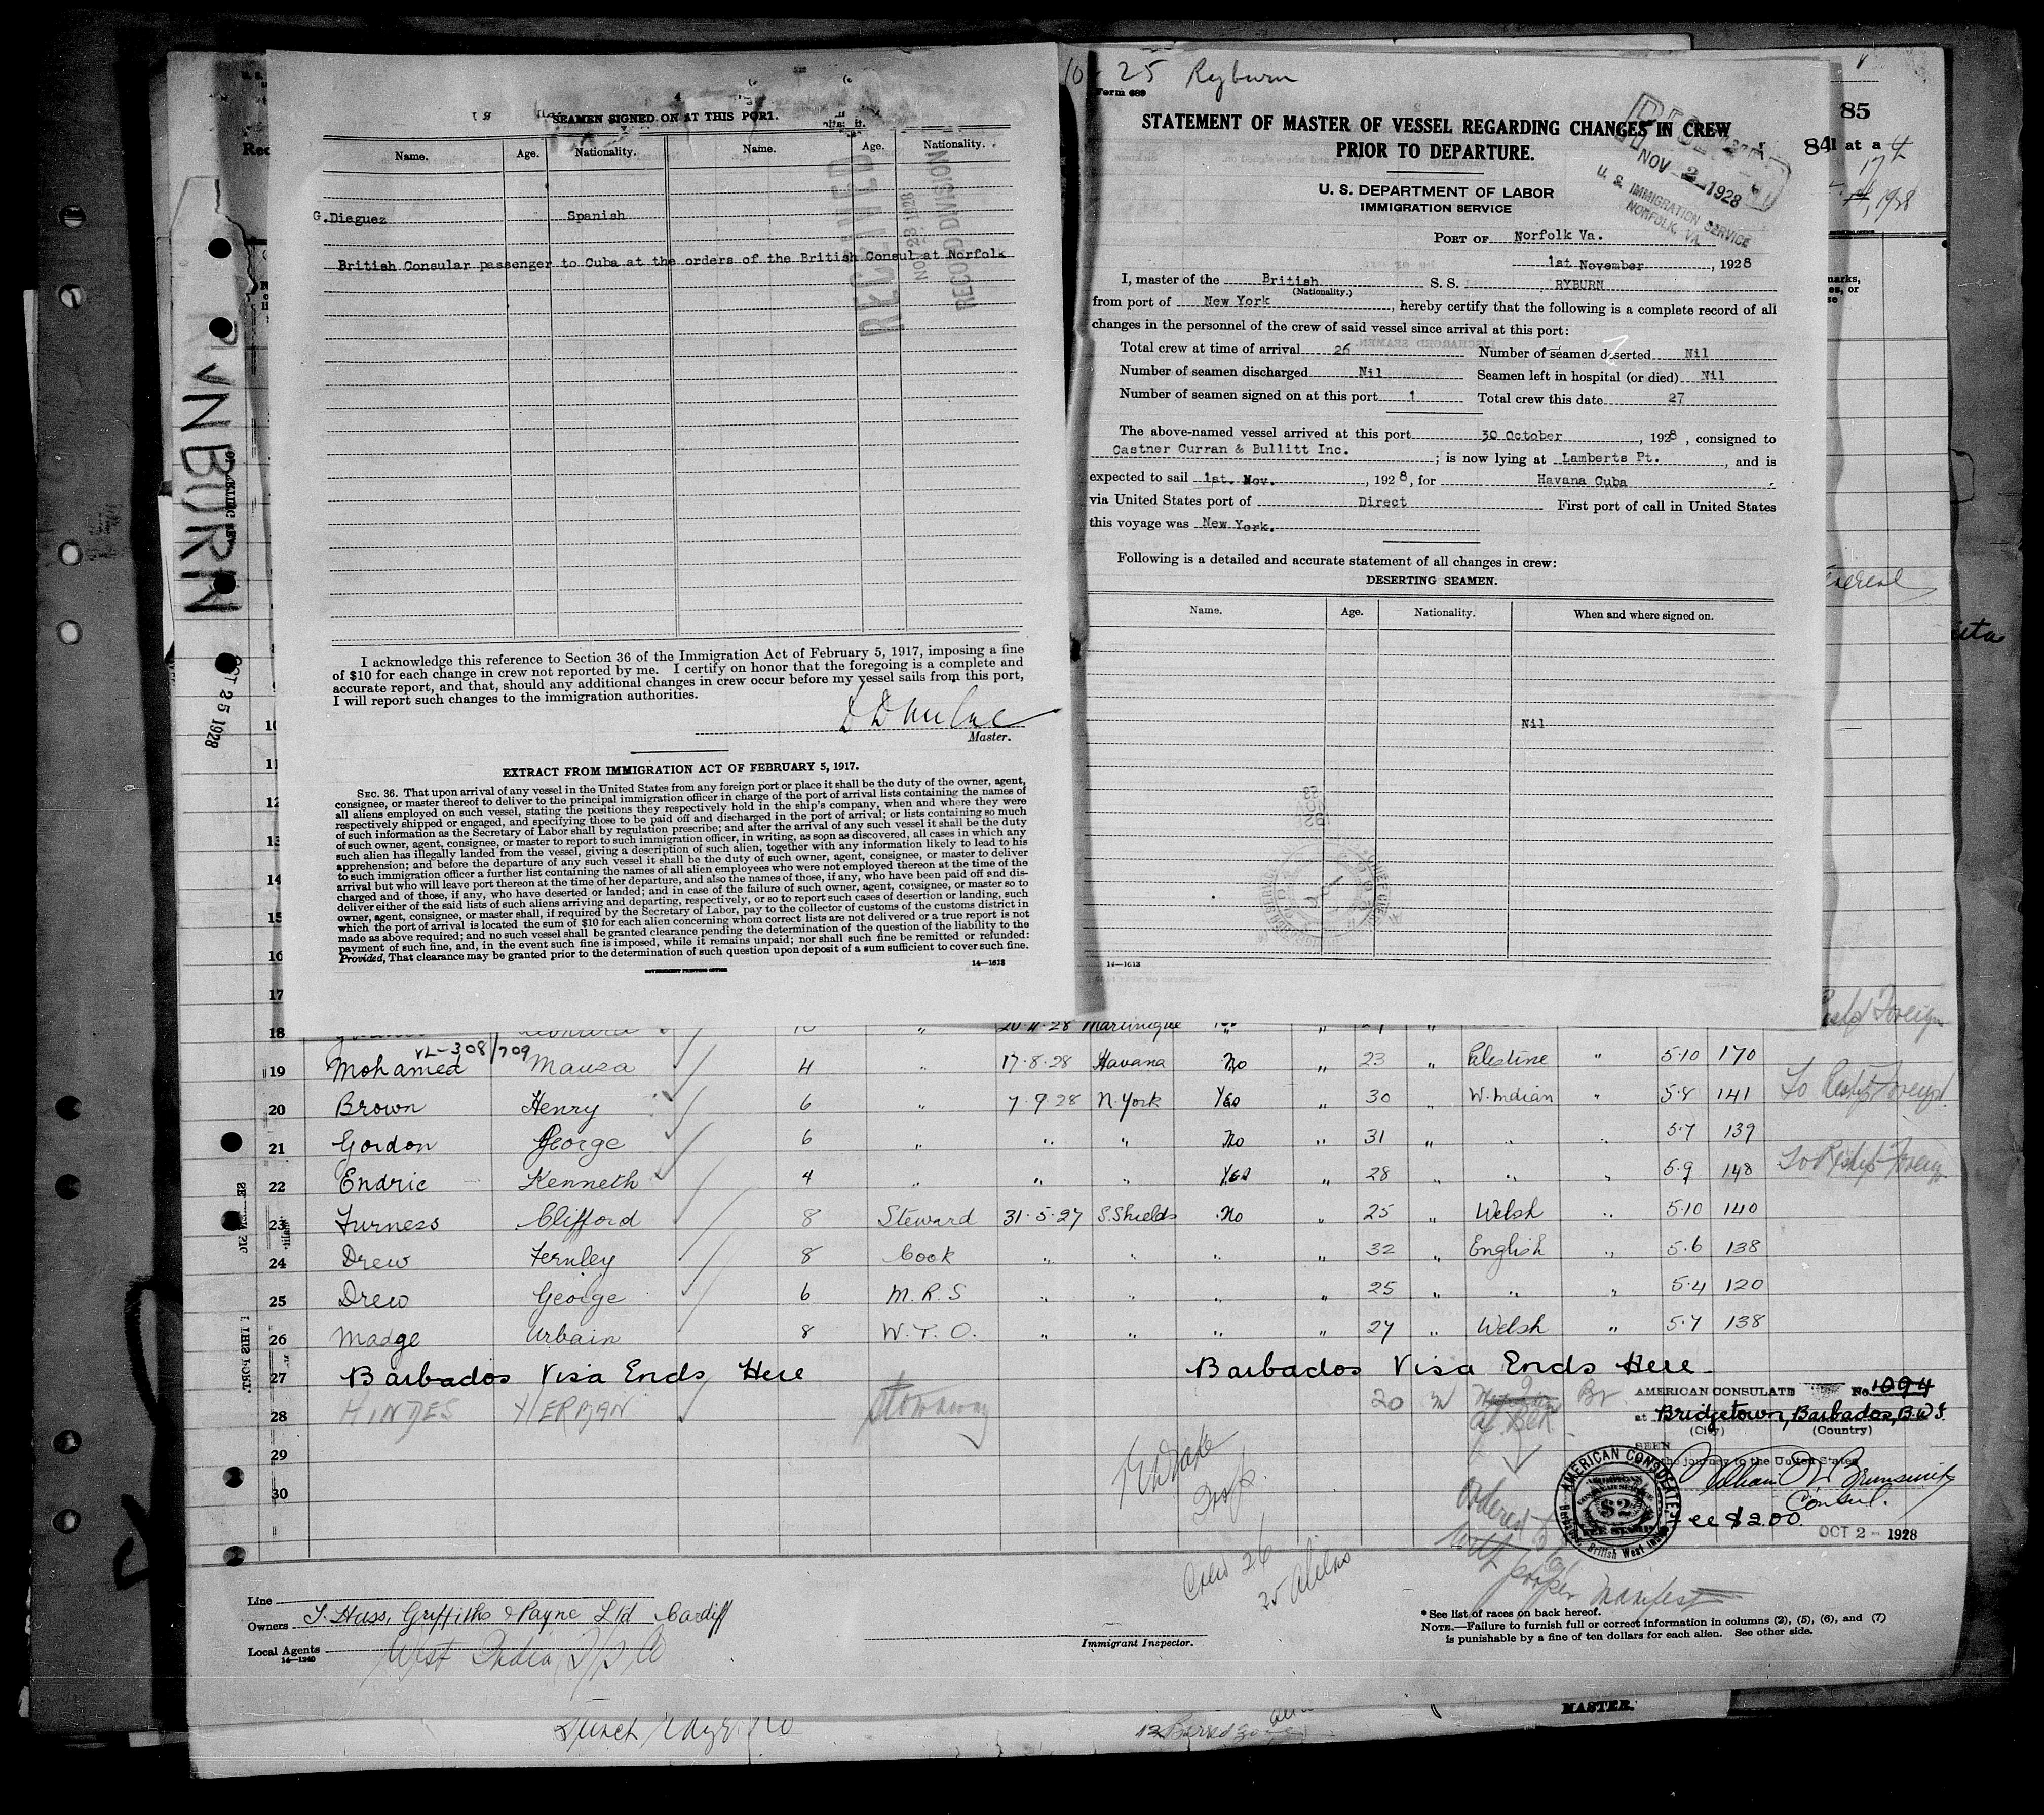 SEAMEN SIGNED ON AT THIS PORT.
Name. Age. Nationality. Name. Age. Nationality.
G.Dieguez Spanish
British Consular passenger to Cuba at the orders of the British Consul at Norfolk
RECEIVED
NOV 28 1928
RECORD DIVISION
I acknowledge this reference to Section 36 of the Immigration Act of February 5, 1917, imposing a fine
of $10 for each change in crew not reported by me. I certify on honor that the foregoing is a complete and
accurate report, and that, should any additional changes in crew occur before my vessel sails from this port,
I will report such changes to the immigration authorities.
Master.
EXTRACT FROM IMMIGRATION ACT OF FEBRUARY 5, 1917.
SEC. 36. That upon arrival of any vessel in the United States from any foreign port or place it shall be the duty of the owner, agent,
consignee, or master thereof to deliver to the principal immigration officer in charge of the port of arrival lists containing the names of
all aliens employed on such vessel, stating the positions they respectively hold in the ship's company, when and where they were
respectively shipped or engaged, and specifying those to be paid off and discharged in the port of arrival; or lists containing so much
of such information as the Secretary of Labor shall by regulation prescribe; and after the arrival of any such vessel it shall be the duty
of such owner, agent, consignee, or master to report to such immigration officer, in writing, as soon as discovered, all cases in which any
such alien has illegally landed from the vessel, giving a description of such alien, together with any information likely to lead to his
apprehension; and before the departure of any such vessel it shall be the duty of such owner, agent, consignee, or master to deliver
to such immigration officer a further list containing the names of all alien employees who were not employed thereon at the time of the
arrival but who will leave port thereon at the time of her departure, and also the names of those, if any, who have been paid off and dis-
charged and of those, if any, who have deserted or landed; and in case of the failure of such owner, agent, consignee, or master so to
deliver either of the said lists of such aliens arriving and departing, respectively, or so to report such cases of desertion or landing, such
owner, agent, consignee, or master shall, if required by the Secretary of Labor, pay to the collector of customs of the customs district in
which the port of arrival is located the sum of $10 for each alien concerning whom correct lists are not delivered or a true report is not
made as above required; and no such vessel shall be granted clearance pending the determination of the question of the liability to the
payment of such fine, and, in the event such fine is imposed, while it remains unpaid; nor shall such fine be remitted or refunded:
Provided, That clearance may be granted prior to the determination of such question upon deposit of a sum sufficient to cover such fine.
GOVERNMENT PRINTING OFFICE
14—1613
10-25 Ryburn
Form 689
STATEMENT OF MASTER OF VESSEL REGARDING CHANGES IN CREW
PRIOR TO DEPARTURE.
U. S. DEPARTMENT OF LABOR
IMMIGRATION SERVICE
NOV 2 1928
U. S. IMMIGRATION SERVICE
NORFOLK, VA.
PORT OF Norfolk Va.
1st November, 1928
I, master of the British S. S. RYBURN
(Nationality.)
from port of New York, hereby certify that the following is a complete record of all
changes in the personnel of the crew of said vessel since arrival at this port:
Total crew at time of arrival 26 Number of seamen deserted Nil
Number of seamen discharged Nil Seamen left in hospital (or died) Nil
Number of seamen signed on at this port 1 Total crew this date 27
The above-named vessel arrived at this port 30 October, 1928, consigned to
Castner Curran & Bullitt Inc.; is now lying at Lamberts Pt., and is
expected to sail 1st. Nov., 1928, for Havana Cuba
via United States port of Direct First port of call in United States
this voyage was New York.
Following is a detailed and accurate statement of all changes in crew:
DESERTING SEAMEN.
Name. Age. Nationality. When and where signed on.
Nil
14—1613
85
OCT 25 1928
10
11
12
13
14
15
16
17
18 20.4.28 Martinique
VL-308/709
19 Mohamed Mausa 4 " 17.8.28 Havana No " 23 " Palestine " 5.10 170
20 Brown Henry 6 " 7.9.28 N.York Yes " 30 " W.Indian " 5.8 141
21 Gordon George 6 " " " No " 31 " " " 5.7 139
22 Endric Kenneth 4 " " " Yes " 28 " " " 5.9 148
23 Furness Clifford 8 Steward 31.5.27 S.Shields No " 25 " Welsh " 5.10 140
24 Drew Fernley 8 Cook " " " " 32 " English " 5.6 138
25 Drew George 6 M.R.S " " " " 25 " " " 5.4 120
26 Madge Urbain 8 W.T.O. " " " " 27 " Welsh " 5.7 138
27 Barbados Visa Ends Here Barbados Visa Ends Here
28 HINDES HERMAN Stowaway 20 M Af. Blk Br
29
30
AMERICAN CONSULATE No. 1094
at Bridgetown, Barbados, B.W.I.
(City) (Country)
SEEN
the journey to the United States
Consul.
Fee $2.00.
OCT 2 - 1928
AMERICAN CONSULATE
$2
FEE STAMP
Crew 26
25 Aliens
Ordered
proper Manifest
Line
Owners Griffiths & Payne Ltd Cardiff
Local Agents West India
14—1240
Immigrant Inspector.
*See list of races on back hereof.
NOTE.—Failure to furnish full or correct information in columns (2), (5), (6), and (7)
is punishable by a fine of ten dollars for each alien. See other side.
MASTER.